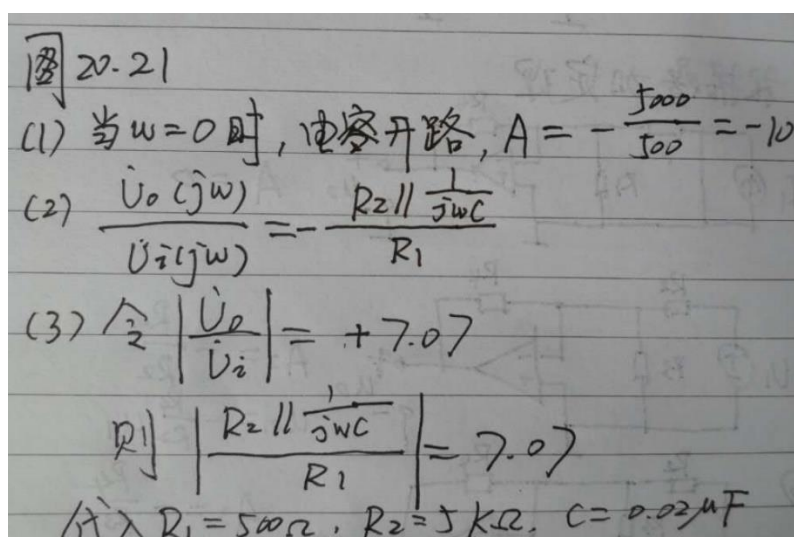 图20.21
(1) 当w=0时,电容开路, A = - 5000/500 = -10
(2) U̇o(jw)/U̇i(jw) = - R2//(1/jwC)/R1
(3) 令 |U̇o/U̇i| = +7.07
则 |R2//(1/jwC)/R1| = 7.07
代入 R1=500Ω, R2=5KΩ, C=0.02μF